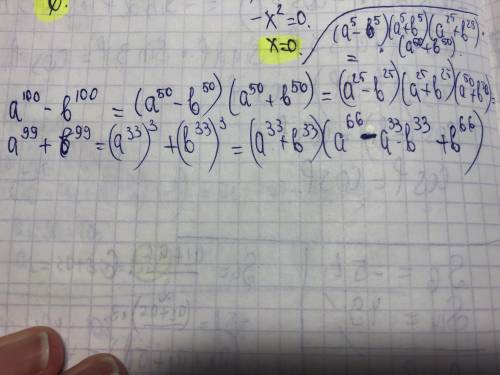 -x²=0.
x=0.
(a⁵-b⁵)(a⁵+b⁵)(a²⁵+b²⁵).
= · (a⁵⁰+b⁵⁰).
a¹⁰⁰-b¹⁰⁰=(a⁵⁰-b⁵⁰)(a⁵⁰+b⁵⁰)=(a²⁵-b²⁵)(a²⁵+b²⁵)(a⁵⁰+b⁵⁰)=
a⁹⁹+b⁹⁹=(a³³)³+(b³³)³=(a³³+b³³)(a⁶⁶-a³³·b³³+b⁶⁶)